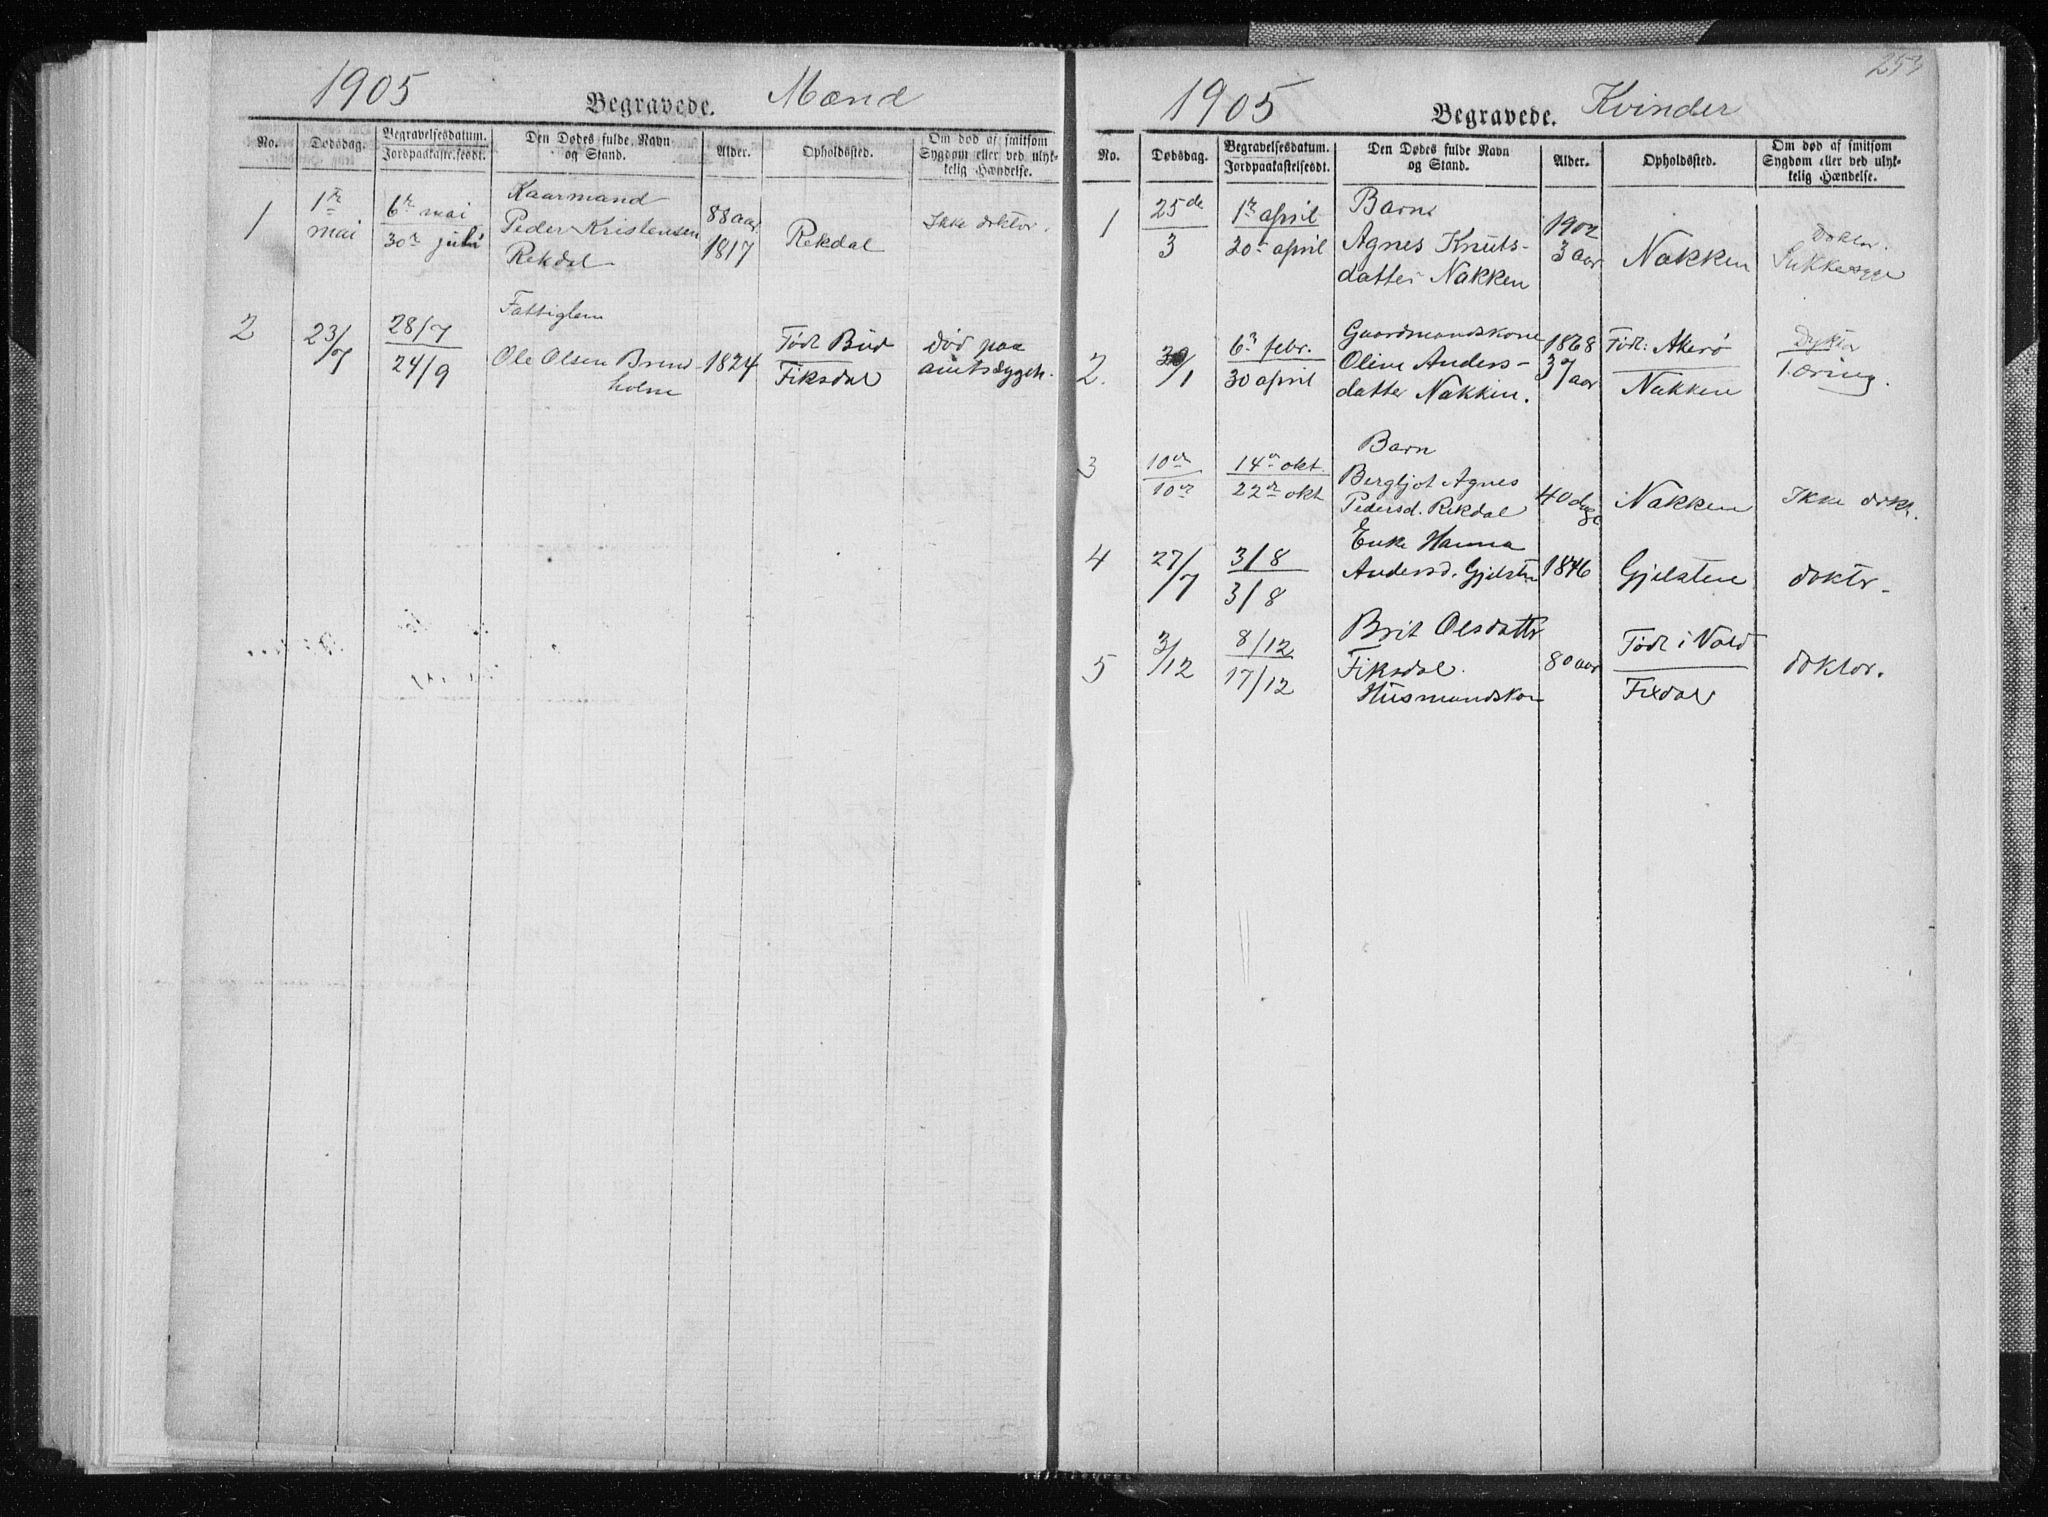 1905 Begravede. Mænd
No. Dødsdag. Begravelsesdatum. Jordpaakastelsesdt. Den Dødes fulde Navn og Stand. Alder. Opholdssted. Om død af smitsom Sygdom eller ved ulykkelig Hændelse.
Kaarmand
1 1ste mai 6te mai Peder Kristensen 88 aar Rekdal Ikke doktor.
30te juli Rekdal 1817
Fattiglem
2 23/7 28/7 Ole Olsen Brend 1824 Født Bud Død paa
24/9 holm Fiksdal amtssygeh.
253
1905 Begravede. Kvinder
No. Dødsdag. Begravelsesdatum. Jordpaakastelsesdt. Den Dødes fulde Navn og Stand. Alder. Opholdssted. Om død af smitsom Sygdom eller ved ulykkelig Hændelse.
1 25de 1ste april Barn 1902 Doktor.
3 20de april Agnes Knuts- 3 aar Nakken Sukkersyge
datter Nakken
2. 6te febr. Gaardmandskone 1868 Født: Akerø
30 april Olive Anders- 37 aar Nakken Tæring.
datter Nakken.
3 10de 14de okt. Barn
10de 22de okt Bergljot Agnes 40 dage Nakken Ikke dokt.
Pedersd. Rekdal
4 27/7 3/8 Enke Hanna
3/8 Andersd. Gjelsten 1846 Gjelsten doktr.
5 3/12 8/12 Brit Olsdattr Født i Vold
17/12 Fiksdal. 80 aar Fixdal doktor.
Husmandskon